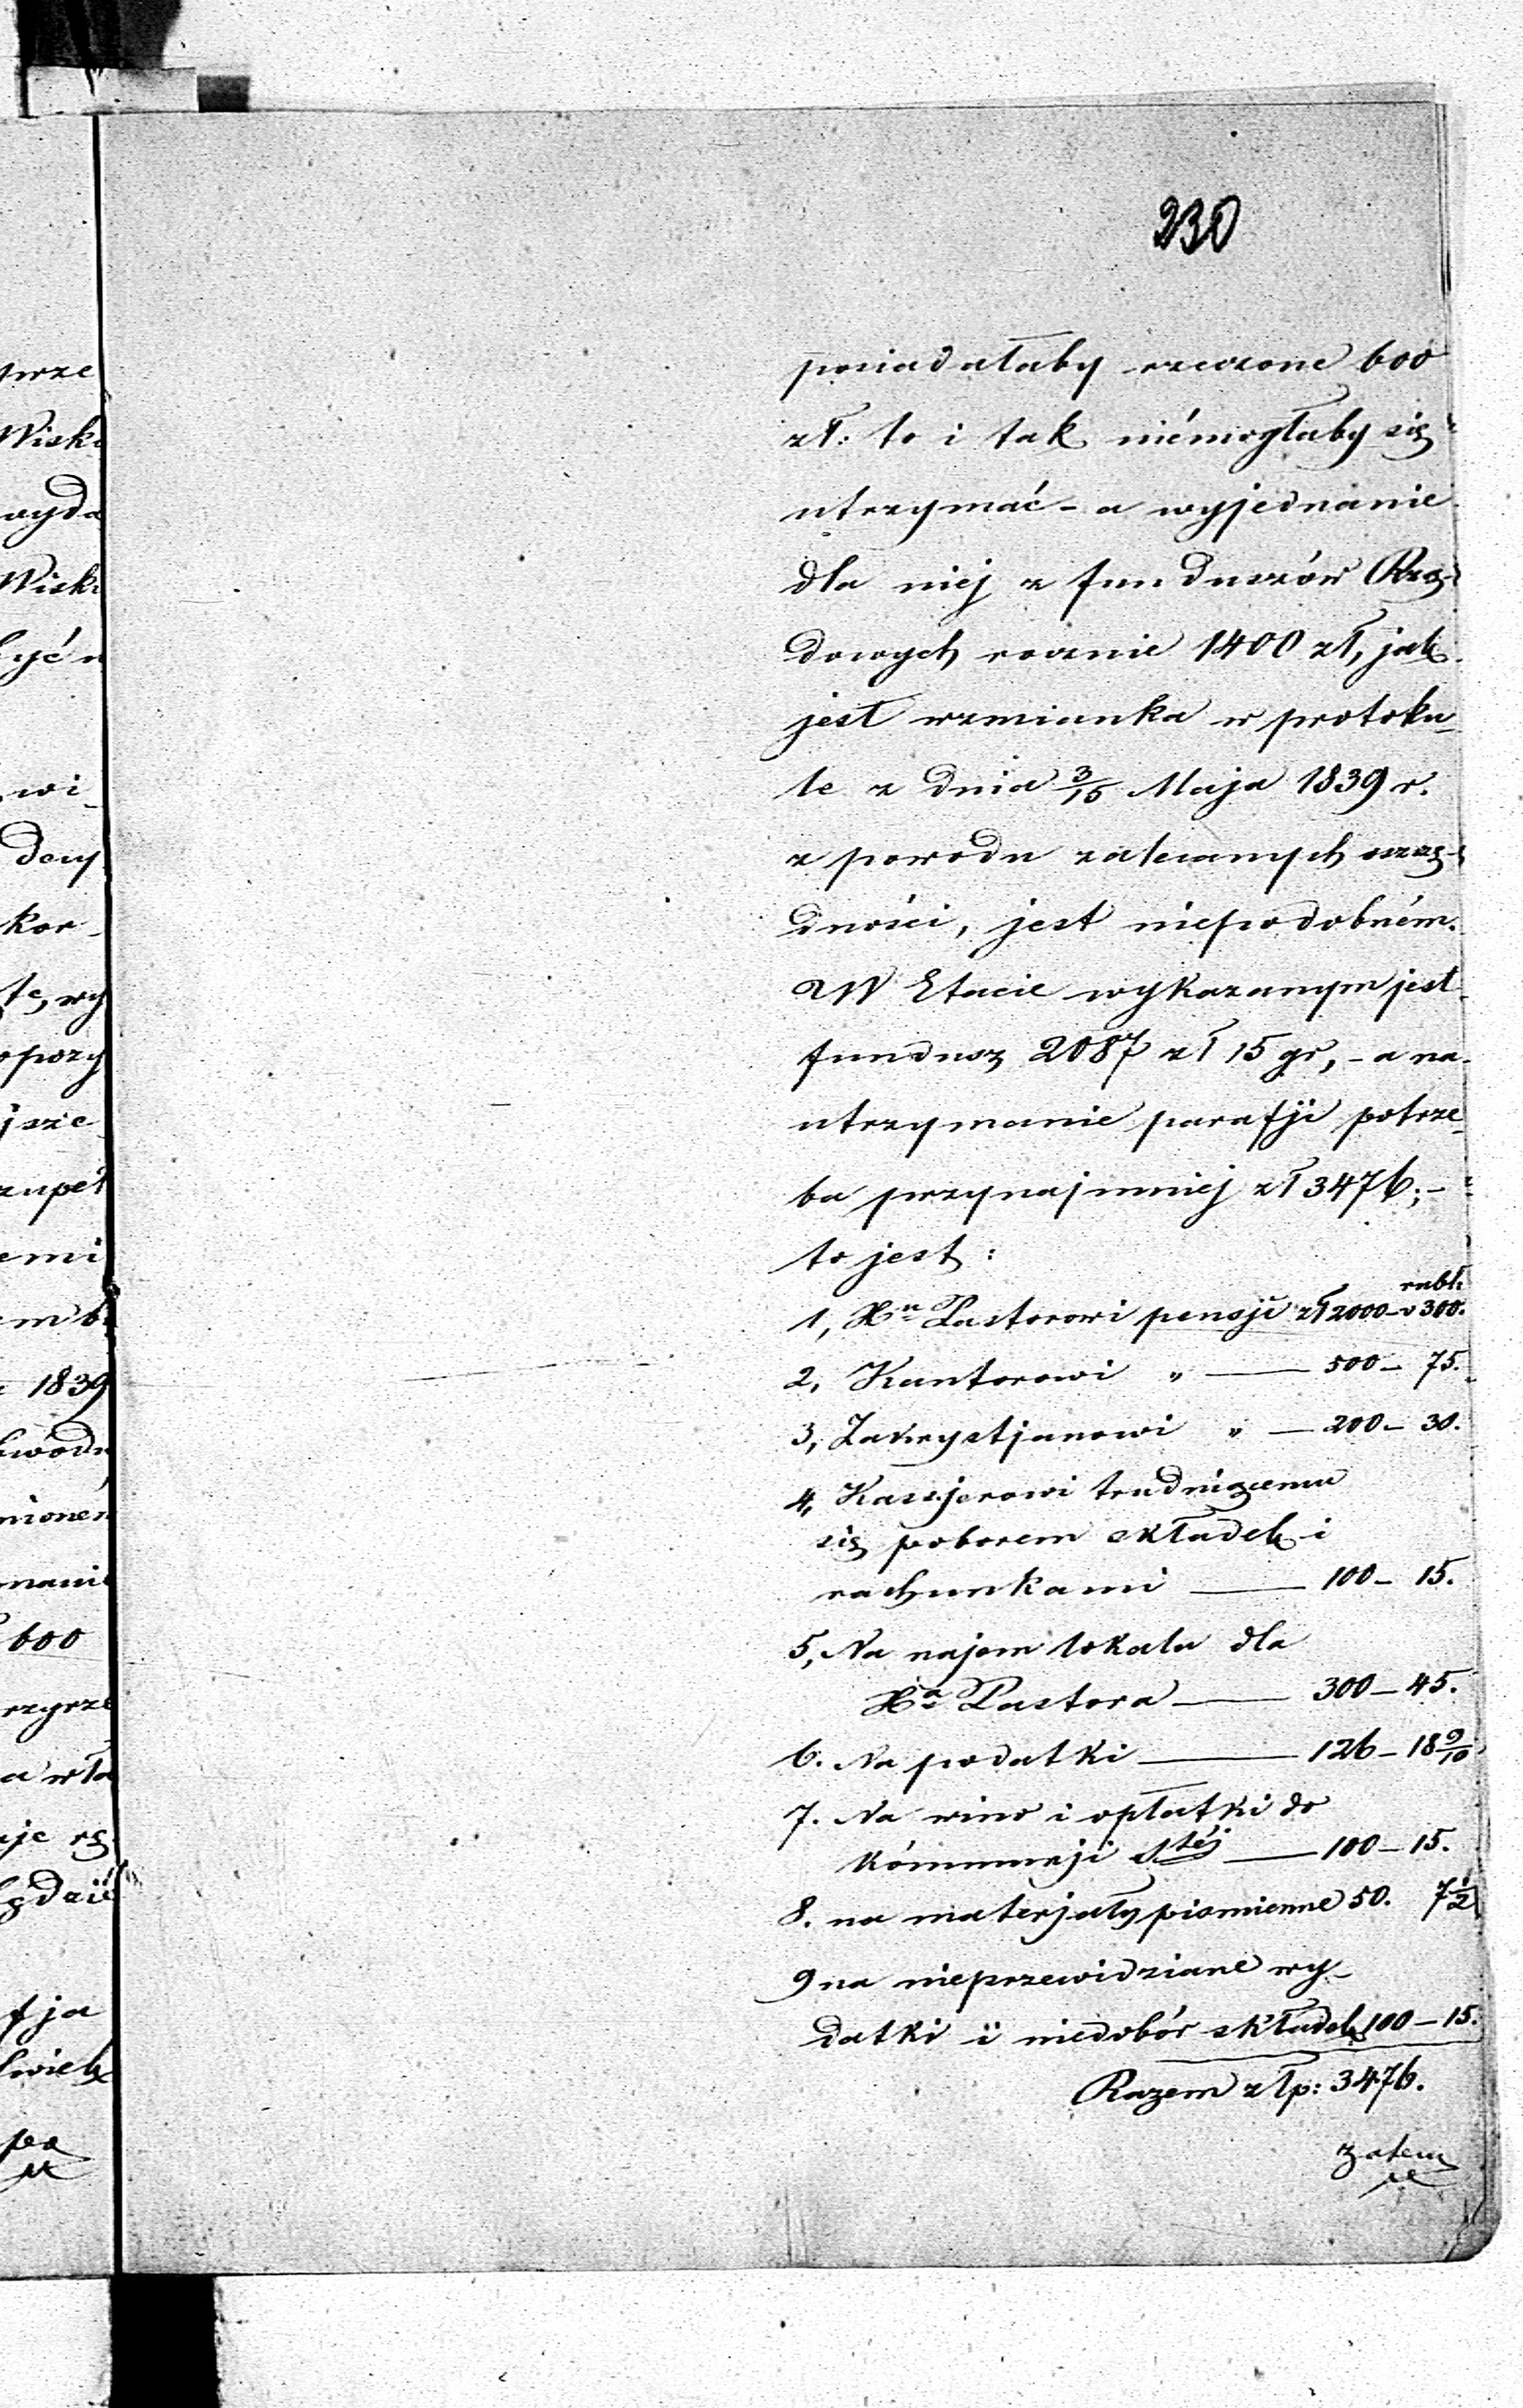 230
posiadałaby rzeczone 600
zł: to i tak niémogłaby się
utrzymać - a wyjednanie
dla niéj z funduszów Rzą-
dowych rocznie 1400 zł, jak
jest wzmianka w protoku_
le z dnia 3/15 Maja 1839 r.
z powodu zalecanych oszczę-
dności, jest niepodobném.
W Etacie wykazanym jest
fundusz 2087 zł 15 gr, - a na
utrzymanie parafji potrze_
ba przynajmniéj zł 3476; -
to jest:
rubli
1, Xu Pastorowi pensji zł 2000 - 300.
2, Kantorowi " — 500 - 75.
3, Zakrystjanowi " — 200 - 30.
4, Kassjerowi trudniącemu
się poborem składek i
rachunkami — 100 - 15.
5, Na najem lokalu dla
Xa Pastora — 300 - 45.
6. Na podatki — 126 - 18 9/10
7. Na wino i opłatki do
kómmunji Stéj — 100 - 15.
8. na materjały piśmienne 50. 7 1/2
9 na nieprzewidziane wy_
datki i niedobór składek 100 - 15.
Razem złp: 3476.
zatem
prze
Wisk
wyda
Wisk
być
wi_
decy
kor_
te, wy
opozy
j sze
zupeł
emi
em b
1839
wodu
nioném
manie
600
a wła
uje
gdzie
fja